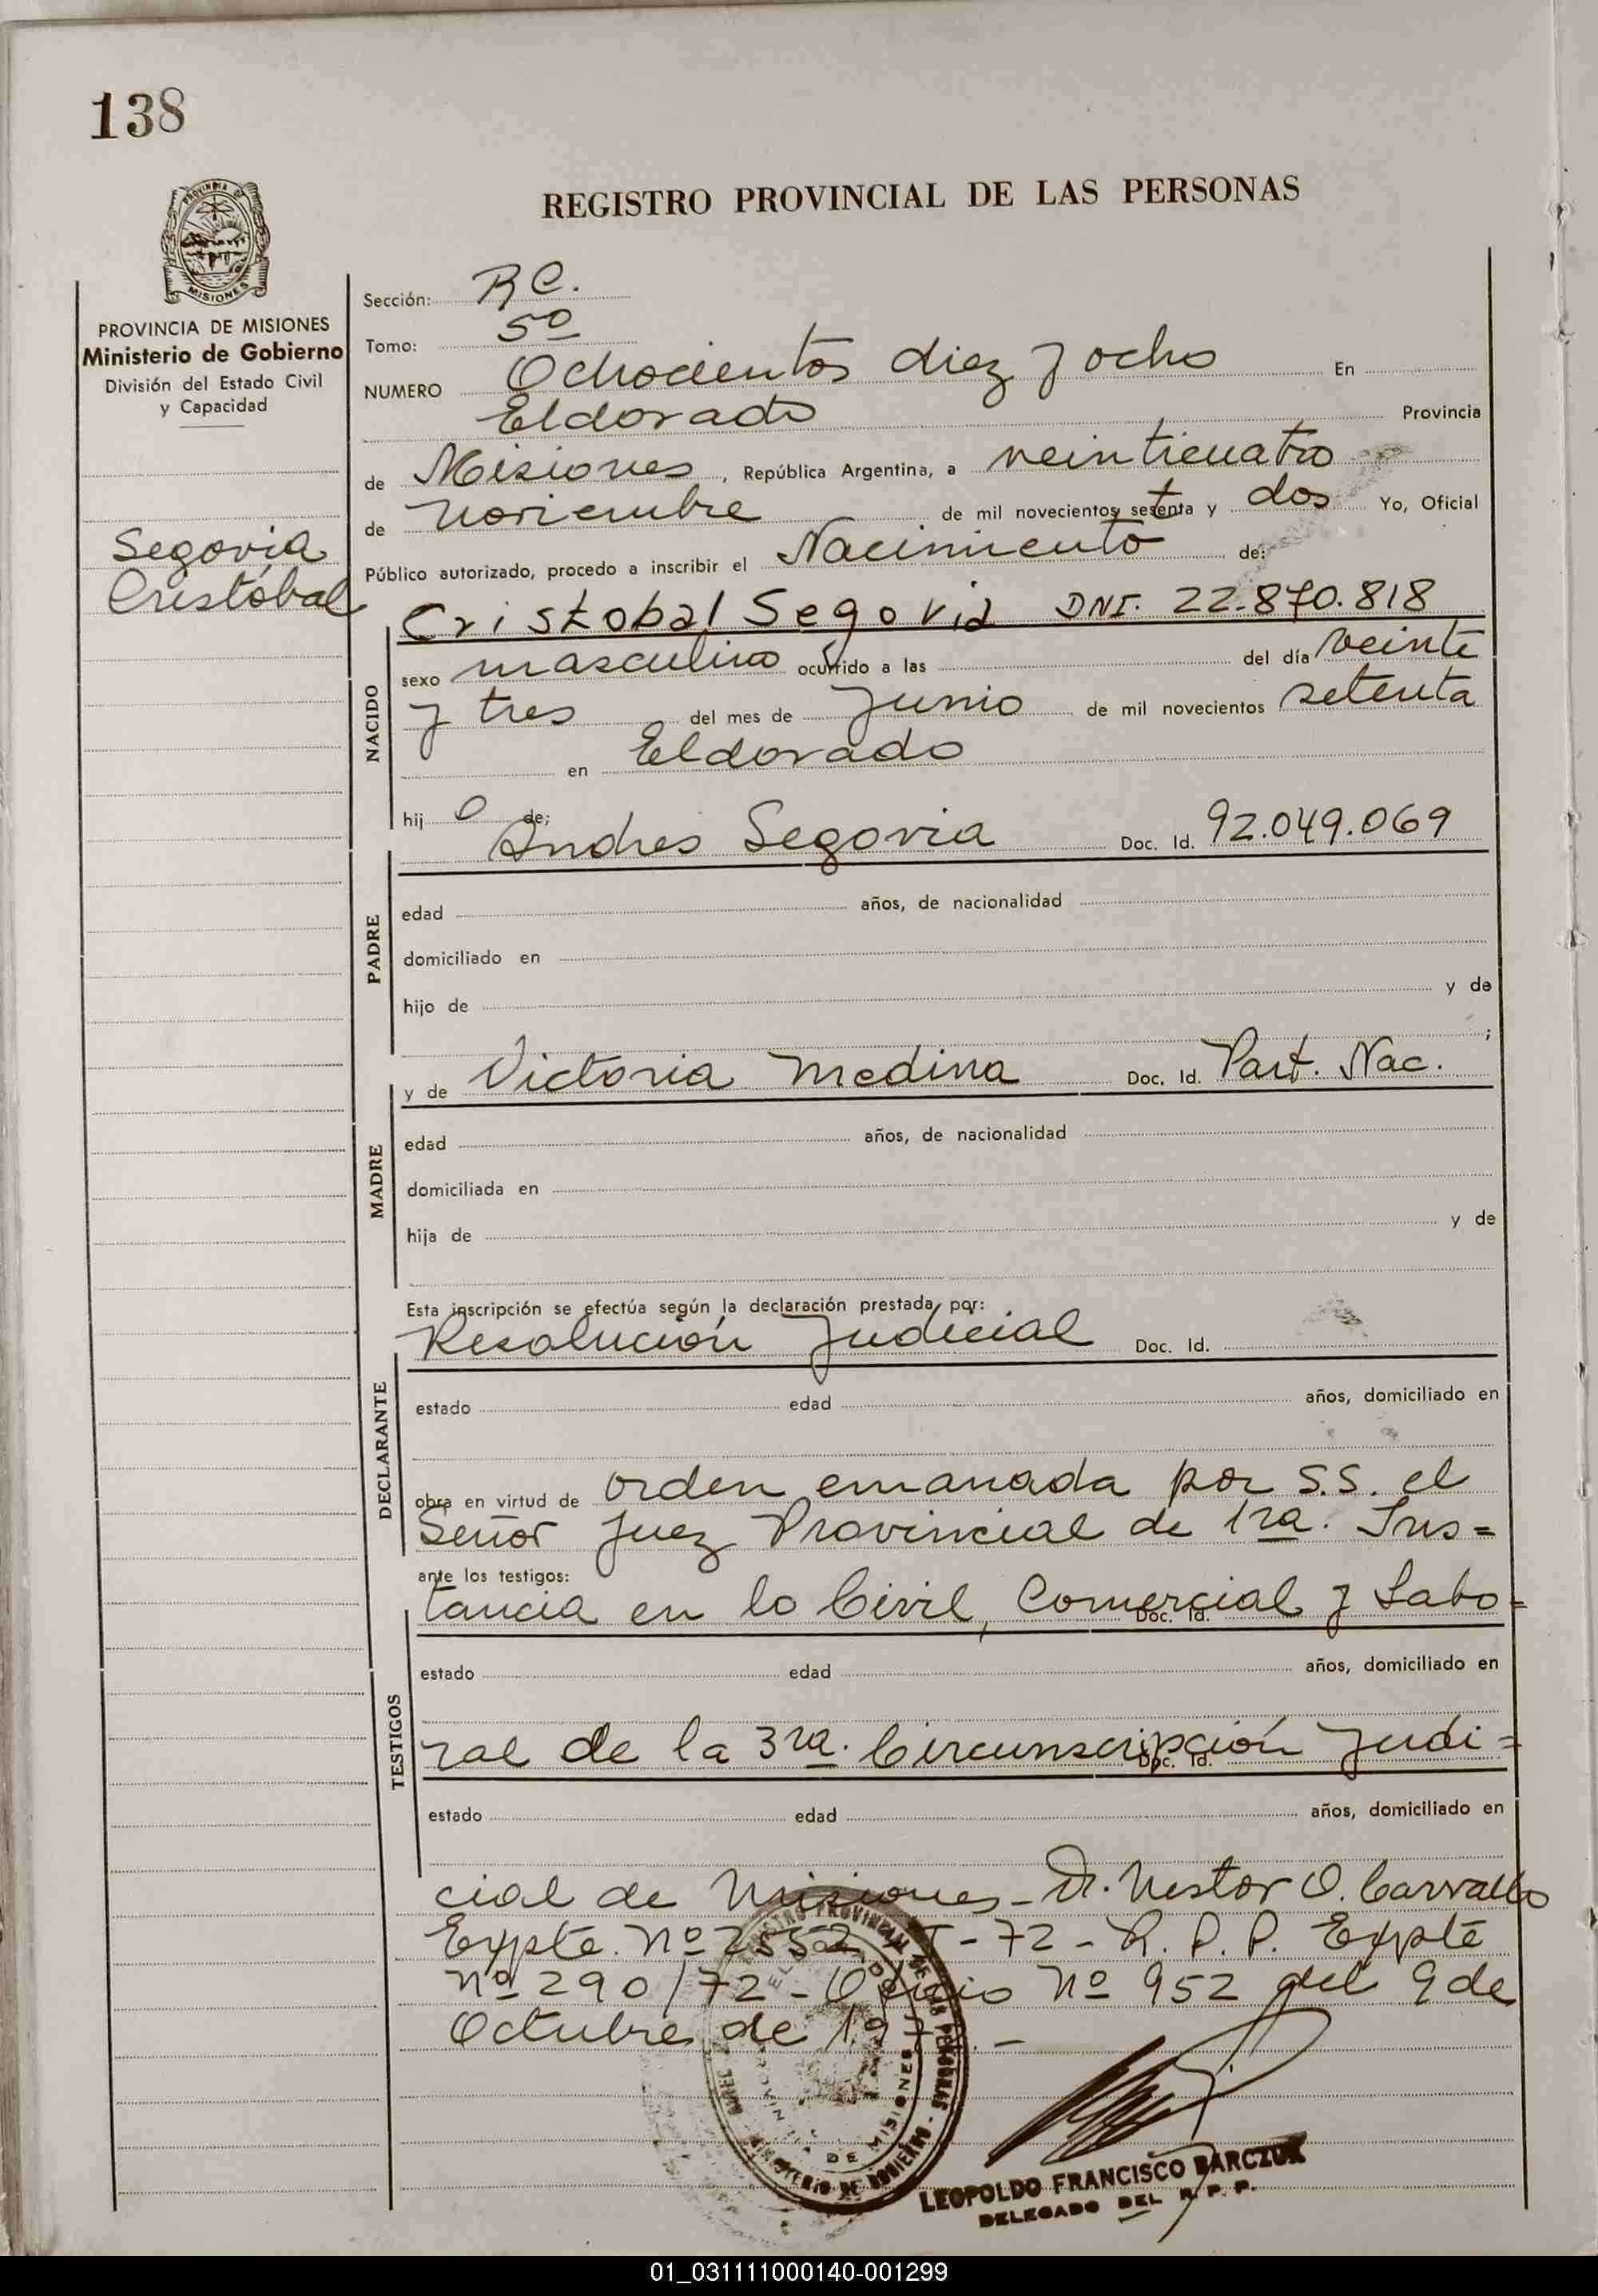 138
PROVINCIA DE
MISIONES
REGISTRO PROVINCIAL DE LAS PERSONAS
PROVINCIA DE MISIONES
Ministerio de Gobierno
División del Estado Civil
y Capacidad
Segovia
Cristóbal
Sección: R C.
Tomo: 5º
NUMERO Ochocientos diez y ocho En
Eldorado Provincia
de Misiones, República Argentina, a veinticuatro
de noviembre de mil novecientos setenta y dos Yo, Oficial
Público autorizado, procedo a inscribir el Nacimiento de:
Cristobal Segovia DNI. 22.870.818
NACIDO
sexo masculino ocurrido a las del día veinte
y tres del mes de Junio de mil novecientos setenta
en Eldorado
hijo de;
Andres Segovia Doc. Id. 92.049.069
PADRE
edad años, de nacionalidad
domiciliado en
hijo de y de
;
y de Victoria Medina Doc. Id. Part. Nac.
MADRE
edad años, de nacionalidad
domiciliada en
hija de y de
Esta inscripción se efectúa según la declaración prestada por:
Resolución Judicial Doc. Id.
DECLARANTE
estado edad años, domiciliado en
obra en virtud de orden emanada por S.S. el
Señor Juez Provincial de 1ra. Ins=
ante los testigos:
tancia en lo Civil, Comercial y Labo=
Doc. Id.
TESTIGOS
estado edad años, domiciliado en
ral de la 3ra. Circunscripción Judi=
Doc. Id.
estado edad años, domiciliado en
cial de Misiones - Dr. Nestor O. Carvallo
Expte. Nº 2552 - T - 72 - R. P. P. Expte
Nº 290/72 - Oficio Nº 952 del 9 de
Octubre de
REGISTRO PROVINCIAL DE LAS PERSONAS
MINISTERIO DE GOBIERNO
PROVINCIA DE MISIONES
LEOPOLDO FRANCISCO BARCZUK
DELEGADO DEL R. P. P.
01_031111000140-001299